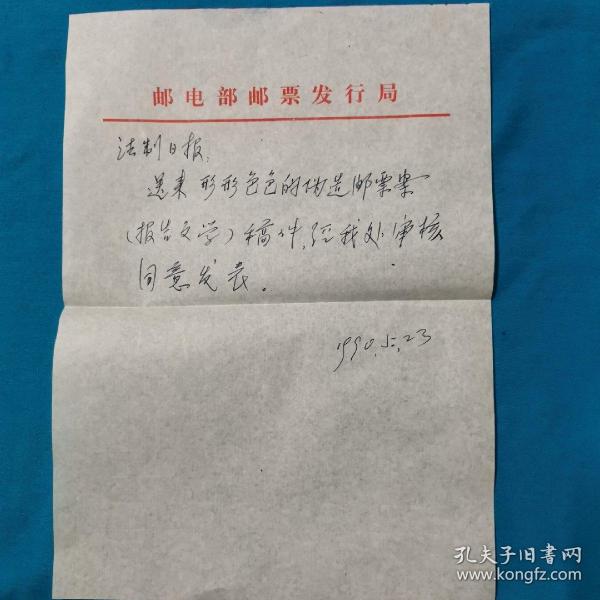 邮电部邮票发行局
法制日报：
送来形形色色的伪造邮票案
（报告文学）稿件，经我处审核
同意发表。
1990.5.23
孔夫子旧书网
www.kongfz.com